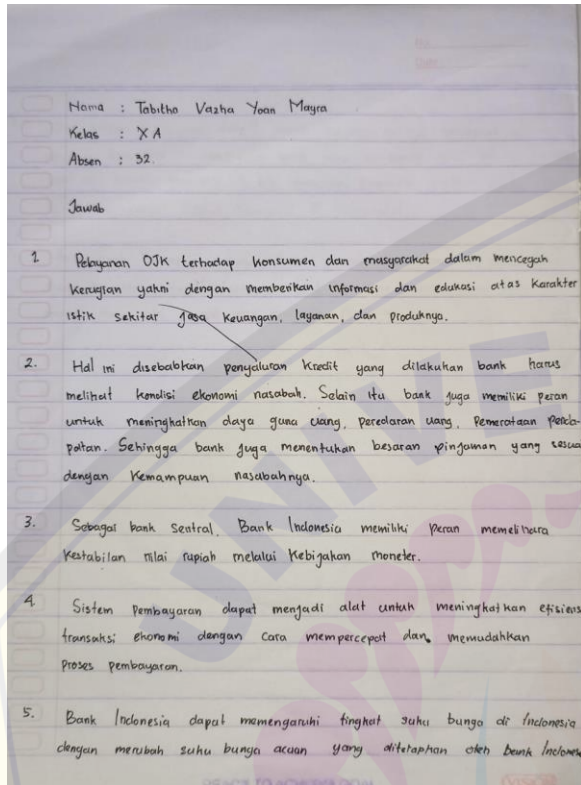 No
Date
Nama : Tabitha Vazha Yoan Mayra
Kelas : X A
Absen : 32.
Jawab
1 Pelayanan OJK terhadap konsumen dan masyarakat dalam mencegah
kerugian yakni dengan memberikan informasi dan edukasi atas karakter
istik sekitar jasa keuangan, layanan, dan produknya.
2. Hal ini disebabkan penyaluran kredit yang dilakukan bank harus
melihat kondisi ekonomi nasabah. Selain itu bank juga memiliki peran
untuk meningkatkan daya guna uang, peredaran uang, Pemerataan Penda-
patan. Sehingga bank juga menentukan besaran pinjaman yang sesua
dengan kemampuan nasabahnya.
3. Sebagai bank sentral, Bank Indonesia memiliki peran memelihara
kestabilan nilai rupiah melalui kebijakan moneter.
4. Sistem pembayaran dapat menjadi alat untuk meningkatkan efisiens
transaksi ekonomi dengan cara mempercepat dan memudahkan
proses pembayaran.
5. Bank Indonesia dapat memengaruhi tingkat suku bunga di Indonesia
dengan merubah suku bunga acuan yang ditetapkan oleh bank Indones
UNIVE